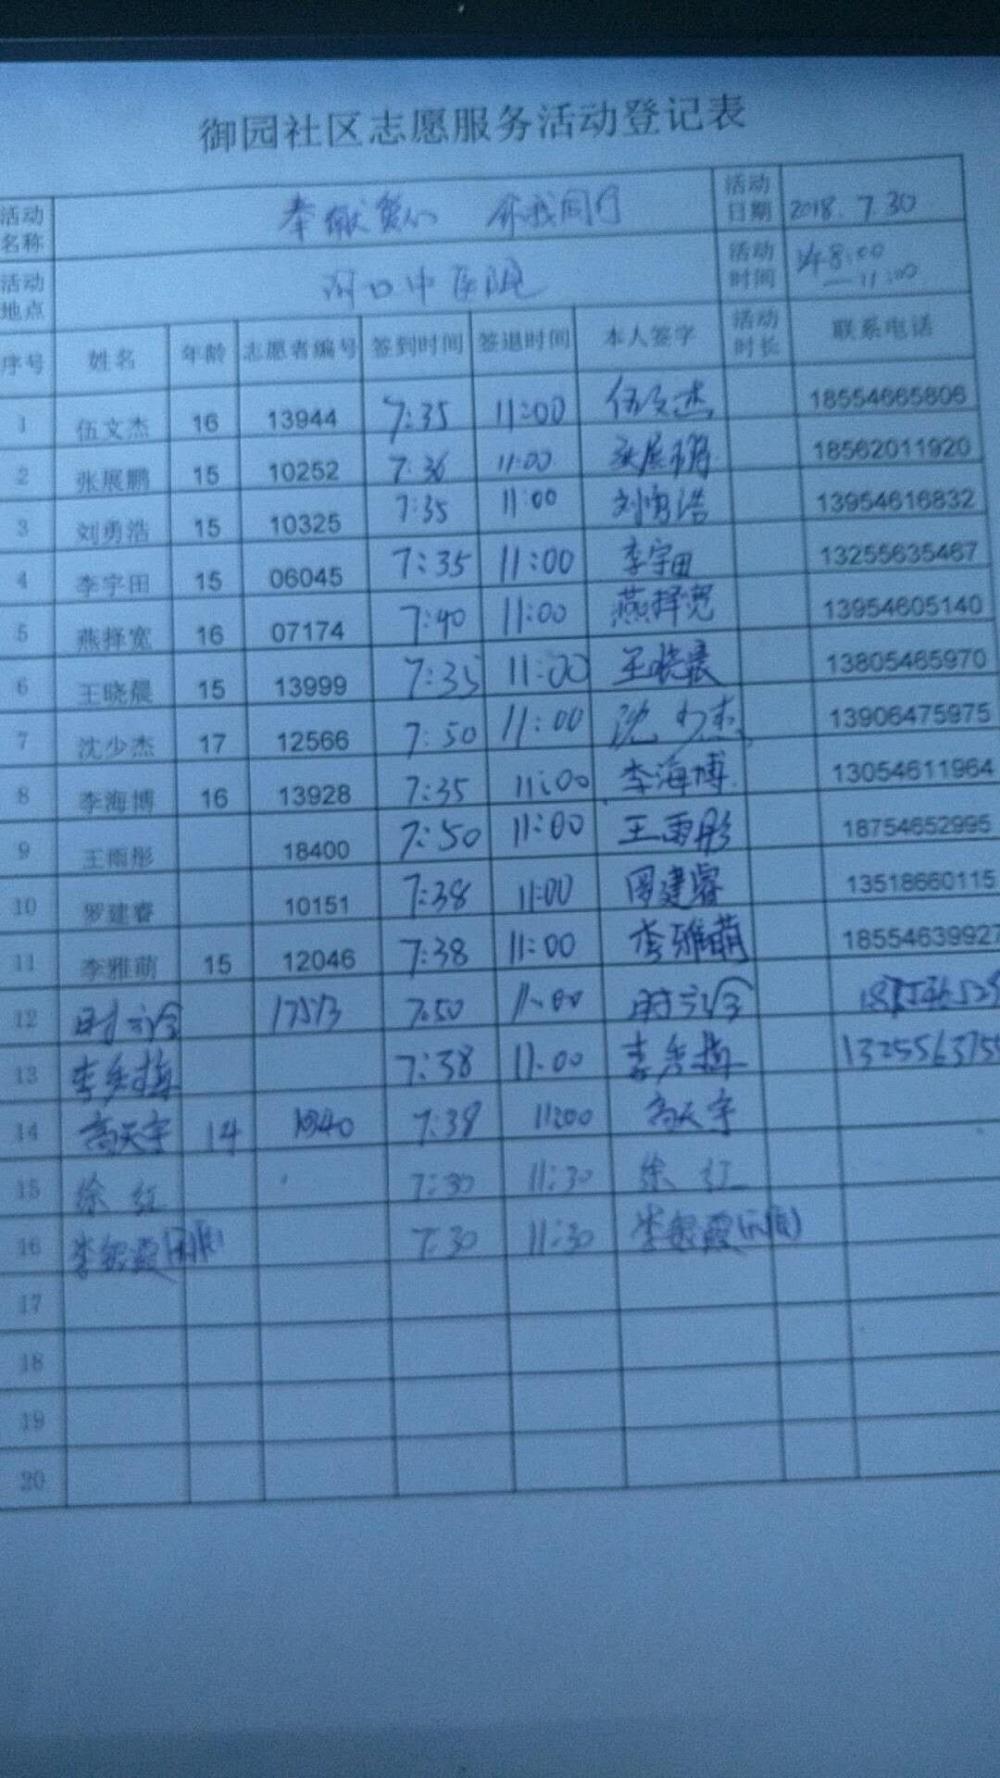 御园社区志愿服务活动登记表
活动名称 奉献爱心 你我同行 活动日期 2018.7.30
活动地点 河口中医院 活动时间 8:00—11:00
序号 姓名 年龄 志愿者编号 签到时间 签退时间 本人签字 活动时长 联系电话
1 伍文杰 16 13944 7:35 11:00 伍文杰 18554665806
2 张展鹏 15 10252 7:36 11:00 张展鹏 18562011920
3 刘勇浩 15 10325 7:35 11:00 刘勇浩 13954616832
4 李宇田 15 06045 7:35 11:00 李宇田 13255635467
5 燕择宽 16 07174 7:40 11:00 燕择宽 13954605140
6 王晓晨 15 13999 7:35 11:00 王晓晨 13805465970
7 沈少杰 17 12566 7:50 11:00 沈少杰 13906475975
8 李海博 16 13928 7:35 11:00 李海博 13054611964
9 王雨彤 18400 7:50 11:00 王雨彤 18754652995
10 罗建睿 10151 7:38 11:00 罗建睿 13518660115
11 李雅萌 15 12046 7:38 11:00 李雅萌 18554639927
12 17513 7:50 11:00
13 7:38 11:00
14 高天宇 14 7:38 11:00 高天宇
15 徐红 7:30 11:30 徐红
16 7:30 11:30
17
18
19
20